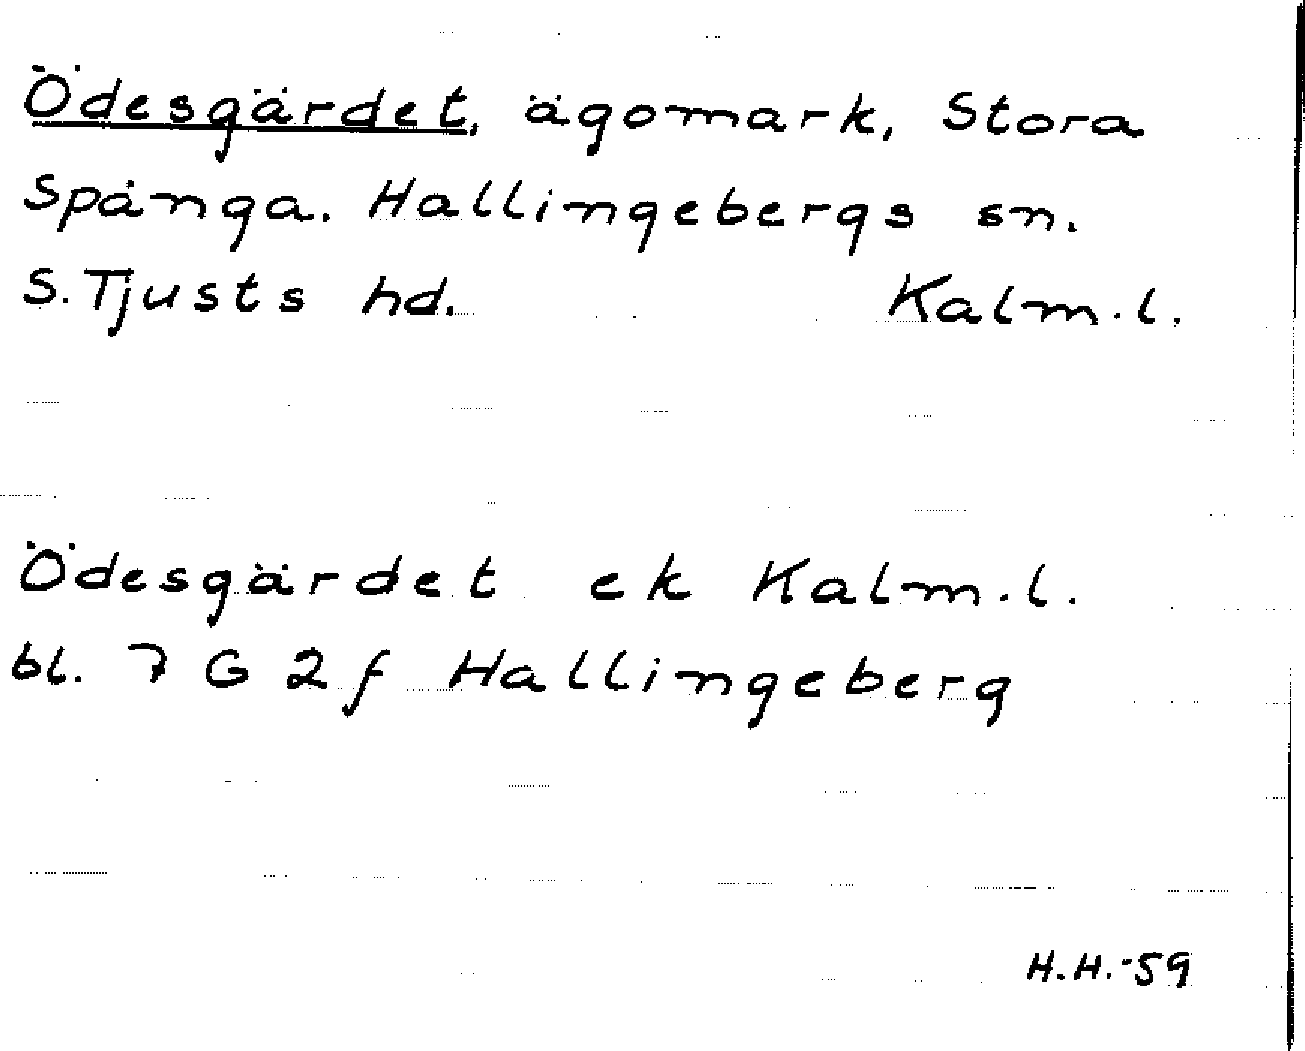 Ödesgärdet, ägomark, Stora
Spånga. Hallingebergs sn.
S. Tjusts hd. Kalm.l.
Ödesgärdet ek Kalm.l.
bl. 7 G 2 f Hallingeberg
H.H.-59